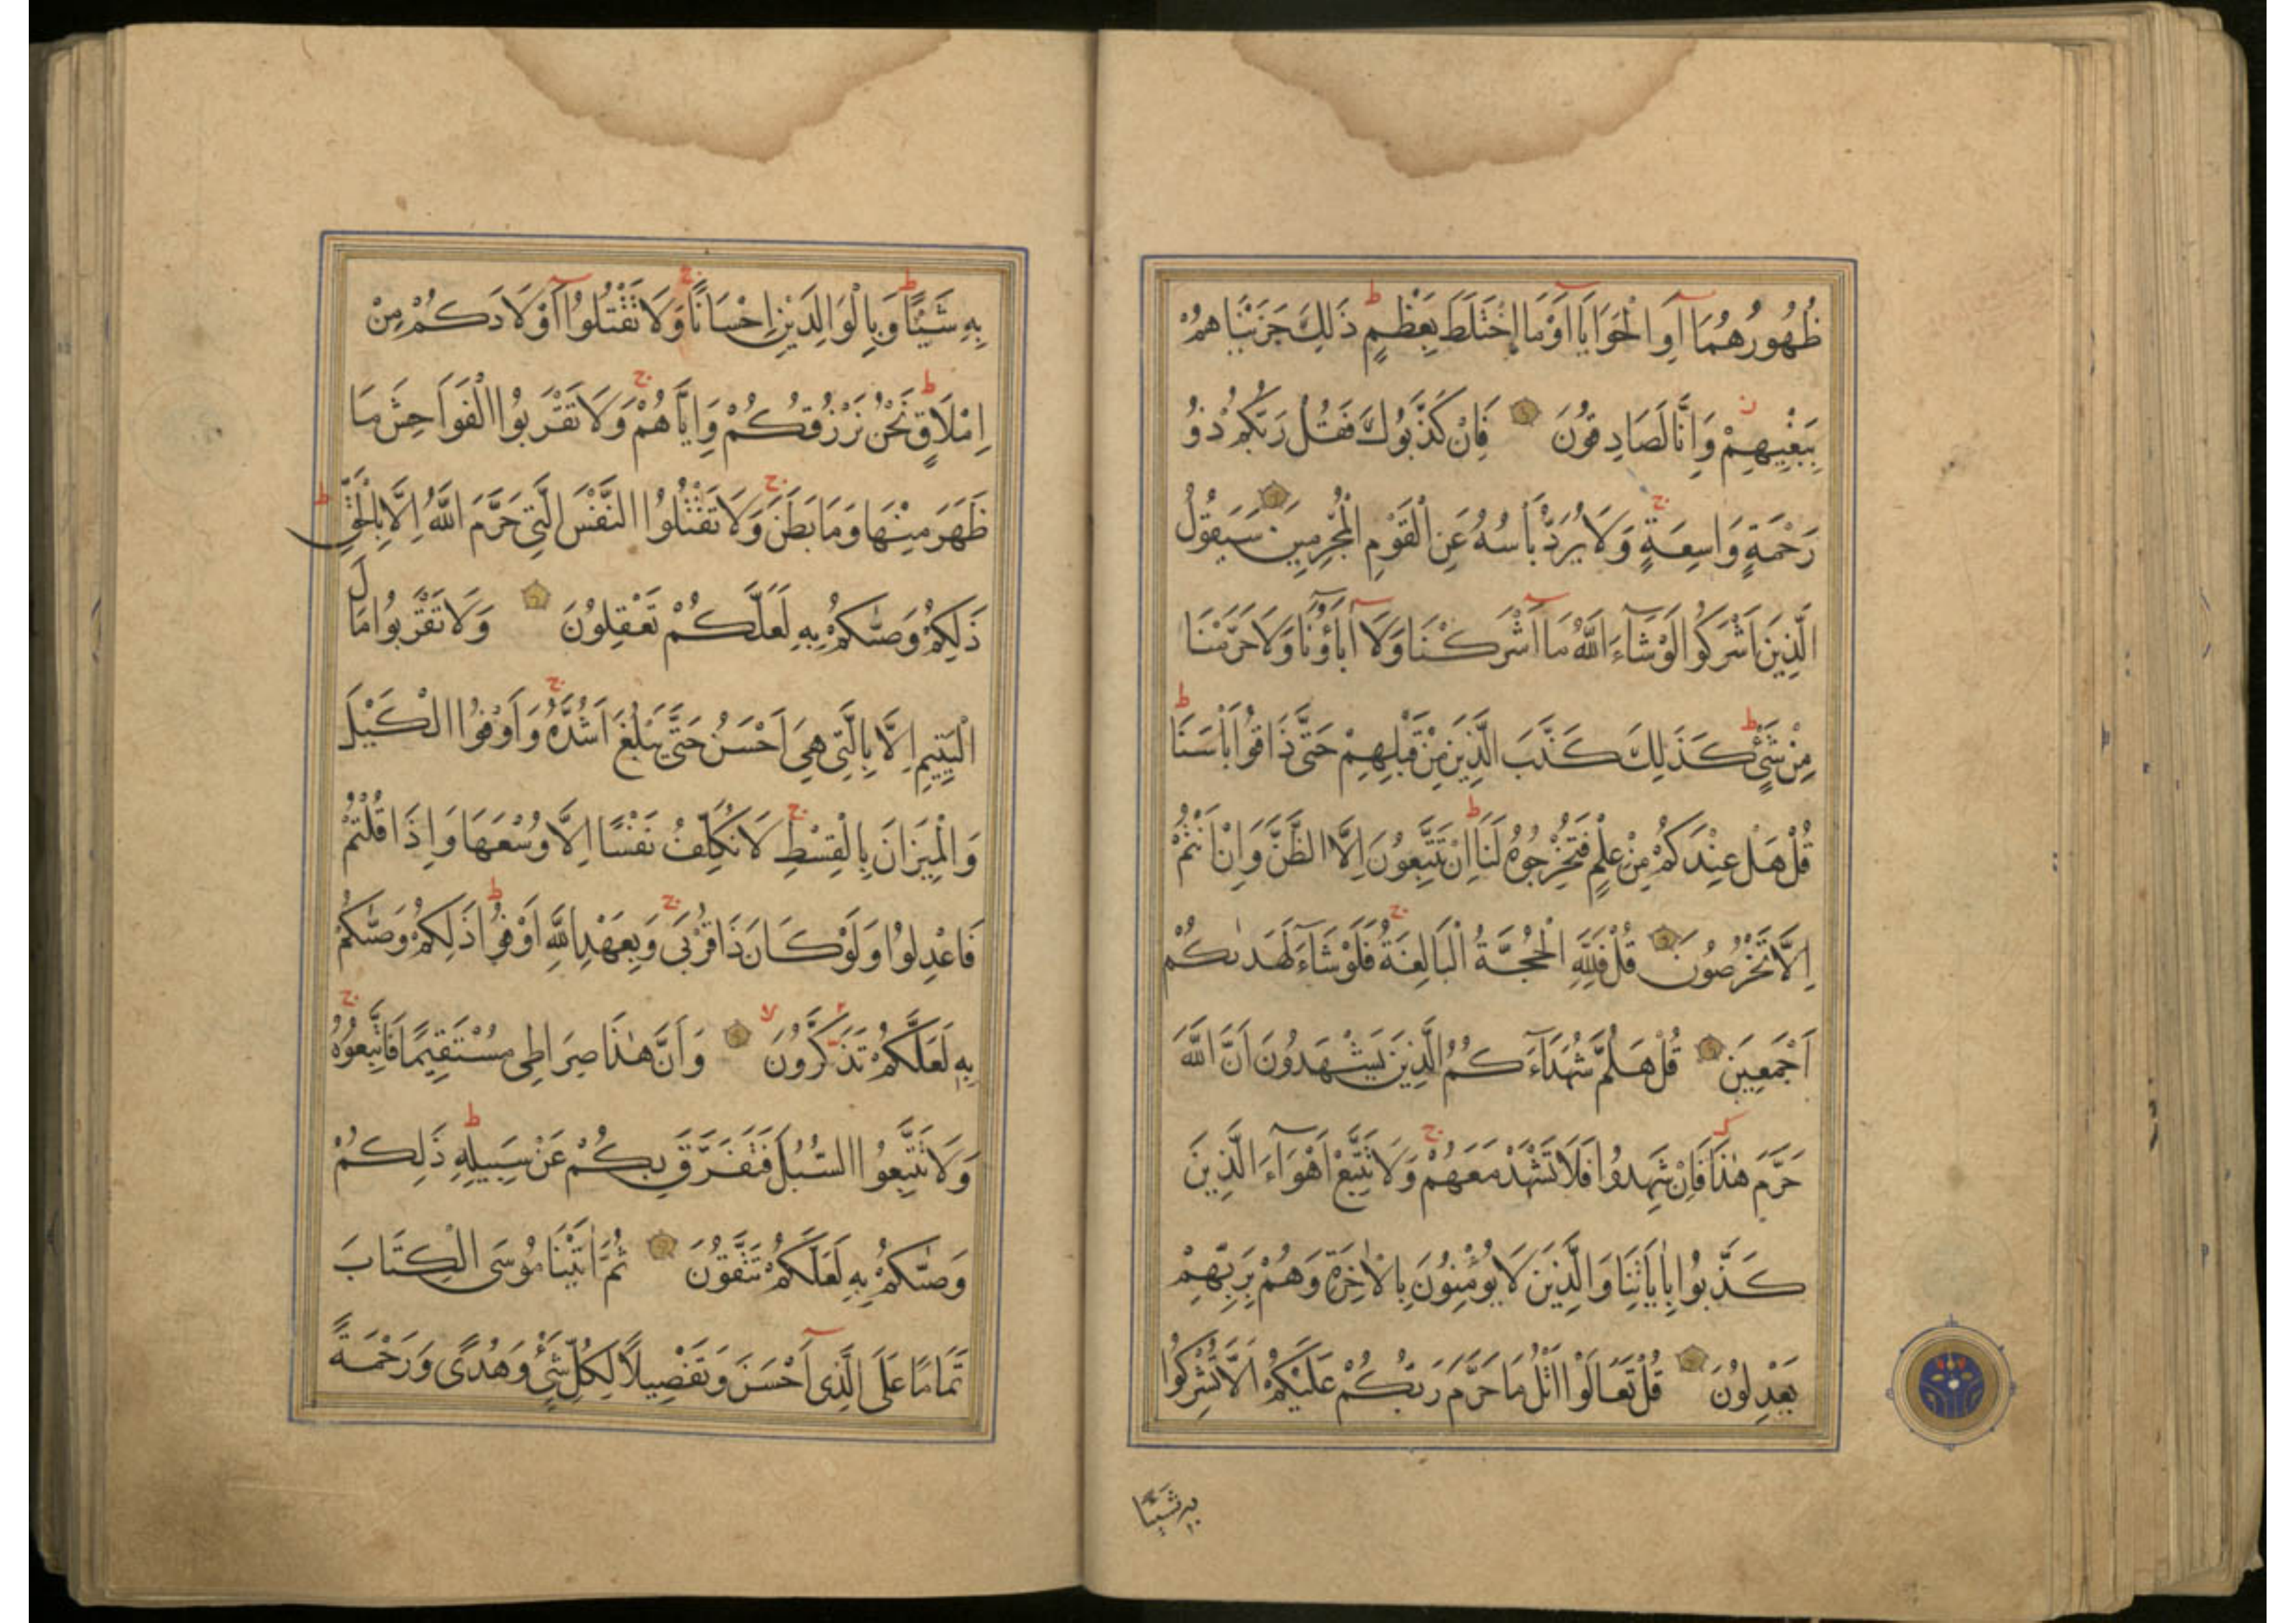 ظُهُورُهُمَا أَوِ الْحَوَايَا أَوْ مَا اخْتَلَطَ بِعَظْمٍ ط ذَلِكَ جَزَيْنَاهُمْ
بِبَغْيِهِمْ ز وَإِنَّا لَصَادِقُونَ فَإِنْ كَذَّبُوكَ فَقُلْ رَبُّكُمْ ذُو
رَحْمَةٍ وَاسِعَةٍ ج وَلَا يُرَدُّ بَأْسُهُ عَنِ الْقَوْمِ الْمُجْرِمِينَ سَيَقُولُ
الَّذِينَ أَشْرَكُوا لَوْ شَآءَ اللَّهُ مَا أَشْرَكْنَا وَلَا آبَاؤُنَا وَلَا حَرَّمْنَا
مِنْ شَيْءٍ ط كَذَلِكَ كَذَّبَ الَّذِينَ مِنْ قَبْلِهِمْ حَتَّى ذَاقُوا بَأْسَنَا ط
قُلْ هَلْ عِنْدَكُمْ مِنْ عِلْمٍ فَتُخْرِجُوهُ لَنَا ط إِنْ تَتَّبِعُونَ إِلَّا الظَّنَّ وَإِنْ أَنْتُمْ
إِلَّا تَخْرُصُونَ قُلْ فَلِلَّهِ الْحُجَّةُ الْبَالِغَةُ ج فَلَوْ شَآءَ لَهَدٰىكُمْ
أَجْمَعِينَ قُلْ هَلُمَّ شُهَدَآءَكُمُ الَّذِينَ يَشْهَدُونَ أَنَّ اللَّهَ
حَرَّمَ هٰذَا فَإِنْ شَهِدُوا فَلَا تَشْهَدْ مَعَهُمْ ج وَلَا تَتَّبِعْ أَهْوَآءَ الَّذِينَ
كَذَّبُوا بِاٰيَاتِنَا وَالَّذِينَ لَا يُؤْمِنُونَ بِالْاٰخِرَةِ وَهُمْ بِرَبِّهِمْ
يَعْدِلُونَ قُلْ تَعَالَوْا أَتْلُ مَا حَرَّمَ رَبُّكُمْ عَلَيْكُمْ أَلَّا تُشْرِكُوا
به شَيْئًا
بِهِ شَيْئًا ط وَبِالْوَالِدَيْنِ إِحْسَانًا ج وَلَا تَقْتُلُوا أَوْلَادَكُمْ مِنْ
إِمْلَاقٍ ط نَحْنُ نَرْزُقُكُمْ وَإِيَّاهُمْ ج وَلَا تَقْرَبُوا الْفَوَاحِشَ مَا
ظَهَرَ مِنْهَا وَمَا بَطَنَ ج وَلَا تَقْتُلُوا النَّفْسَ الَّتِي حَرَّمَ اللَّهُ إِلَّا بِالْحَقِّ ط
ذَلِكُمْ وَصّٰىكُمْ بِهِ لَعَلَّكُمْ تَعْقِلُونَ وَلَا تَقْرَبُوا مَالَ
الْيَتِيمِ إِلَّا بِالَّتِي هِيَ أَحْسَنُ حَتَّى يَبْلُغَ أَشُدَّهُ ج وَأَوْفُوا الْكَيْلَ
وَالْمِيزَانَ بِالْقِسْطِ ج لَا نُكَلِّفُ نَفْسًا إِلَّا وُسْعَهَا وَإِذَا قُلْتُمْ
فَاعْدِلُوا وَلَوْ كَانَ ذَا قُرْبَى ج وَبِعَهْدِ اللَّهِ أَوْفُوا ط ذَلِكُمْ وَصّٰىكُمْ
بِهِ لَعَلَّكُمْ تَذَكَّرُونَ لا وَأَنَّ هٰذَا صِرَاطِي مُسْتَقِيمًا فَاتَّبِعُوهُ ج
وَلَا تَتَّبِعُوا السُّبُلَ فَتَفَرَّقَ بِكُمْ عَنْ سَبِيلِهِ ط ذَلِكُمْ
وَصّٰىكُمْ بِهِ لَعَلَّكُمْ تَتَّقُونَ ثُمَّ اٰتَيْنَا مُوسَى الْكِتَابَ
تَمَامًا عَلَى الَّذِي أَحْسَنَ وَتَفْصِيلًا لِكُلِّ شَيْءٍ وَهُدًى وَرَحْمَةً